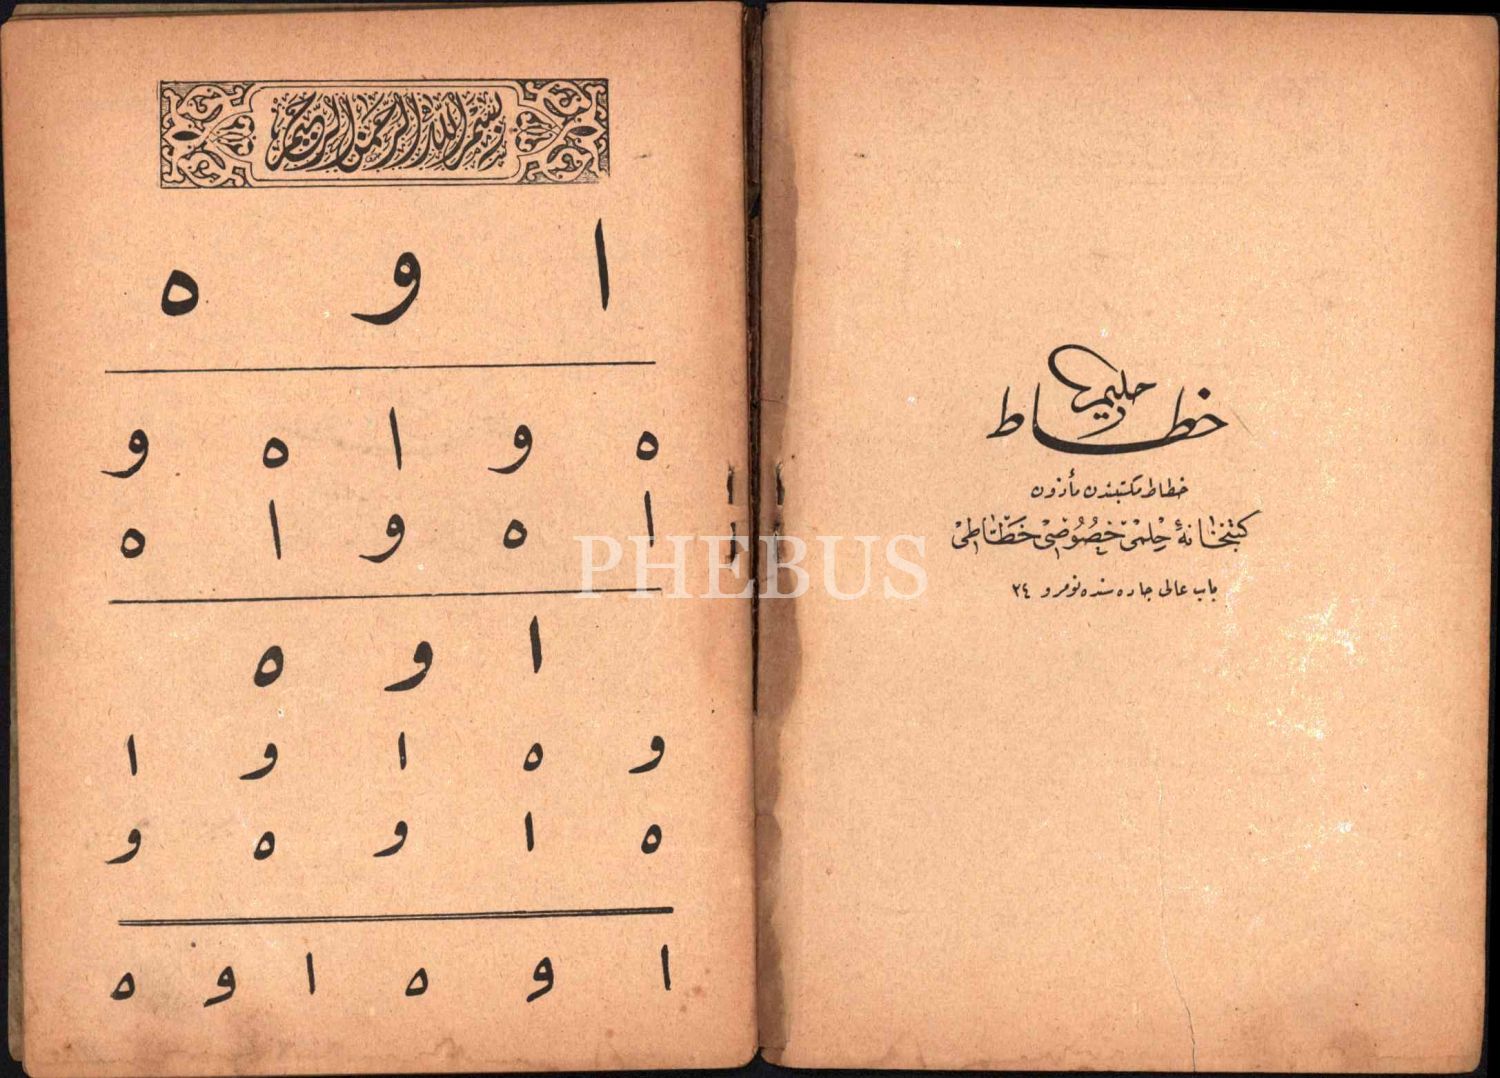 خطاط حليم
خطاط مكتبندن مأذون
كتبخانۀ حلمى خصوصى خطاطى
باب عالى جاده سنده نومرو ٢٤
بسم الله الرحمن الرحيم
ا و ه
ه و ا ه و
ا ه و ا ه
ا و ه
و ه ا و ا
ه ا و ه و
ا و ه ا و ه
PHEBUS